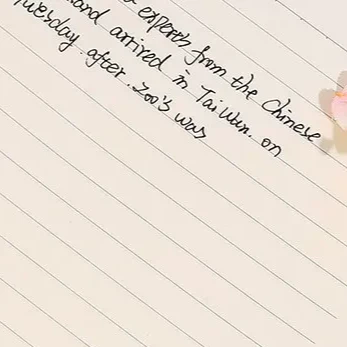 experts from the Chinese
and arrived in TaiWan. on
Tuesday after Zoo's was